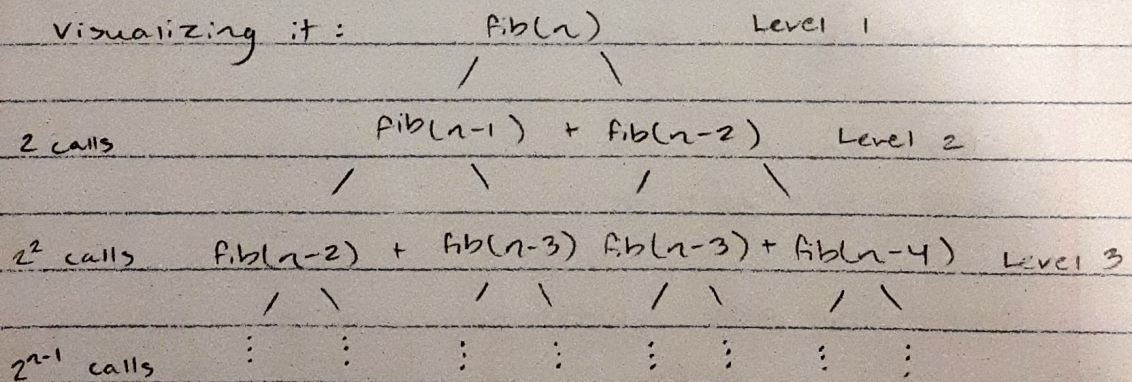 Visualizing it: fib(n) Level 1
2 calls fib(n-1) + fib(n-2) Level 2
2² calls fib(n-2) + fib(n-3) fib(n-3) + fib(n-4) Level 3
2ⁿ⁻¹ calls